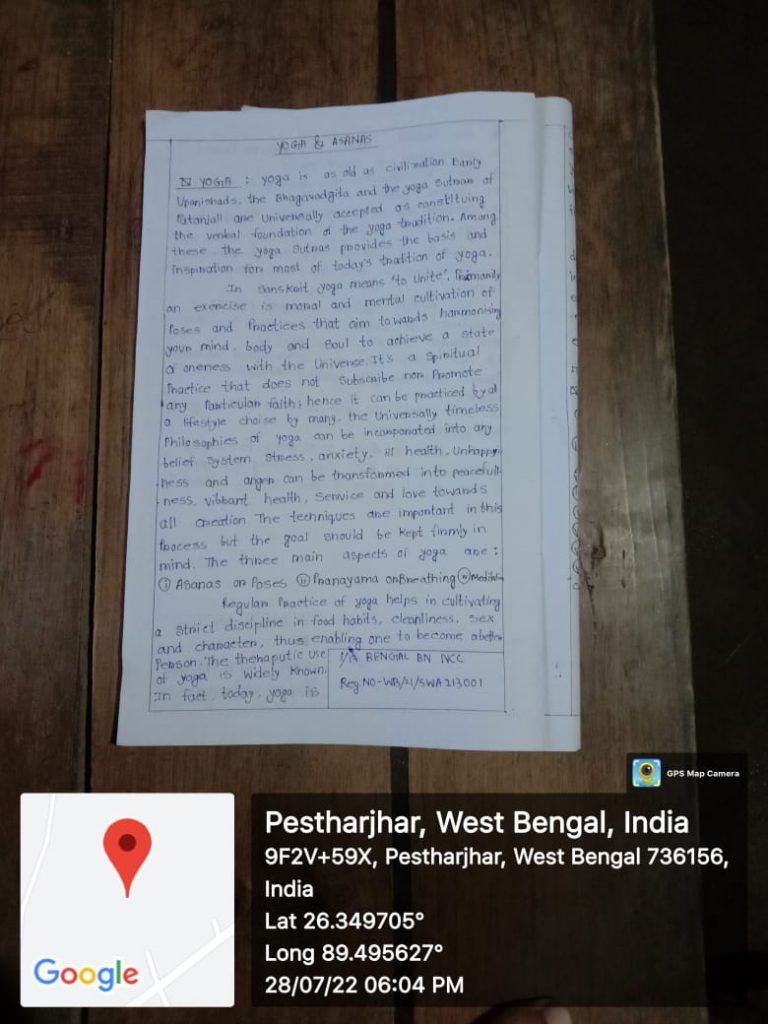 YOGA & ASANAS
YOGA : yoga is as old as civilization Early
Upanishads, the Bhagavadgita and the yoga Sutras of
Patanjali are Universally accepted as constituing
the verbal foundation of the yoga tradition. Among
these, the yoga Sutras provides the basis and
inspiration for most of today's tradition of yoga.
In Sanskrit, yoga means 'to Unite', Primarily
an exercise is moral and mental cultivation of
Poses and Practices that aim towards harmonising
your mind, body and Soul to achieve a state
of oneness with the Universe. It's a Spiritual
Practice that does not Subscribe nor Promote
any Particular faith; hence it can be practiced by al
a lifestyle choise by many. the Universally timeless
Philosophies of yoga can be incorporated into any
belief System. Stress, anxiety, ill health, Unhappy-
-ness and anger can be transformed into peacefull-
-ness, vibbant health, Service and love towards
all creation The techniques are important in this
Process but the goal should be kept firmly in
mind. The three main aspects of yoga are:
(i) Asanas or Poses (ii) Pranayama or Breathing
Regular Practice of yoga helps in cultivating
a strict discipline in food habits, cleanliness, sex
and character, thus enabling one to become
Person. The theraputic use
of yoga is widely known.
In fact, today, yoga is
BENGAL BN NCC
Reg.NO-WB/21/SWA213001
GPS Map Camera
Google
Pestharjhar, West Bengal, India
9F2V+59X, Pestharjhar, West Bengal 736156,
India
Lat 26.349705°
Long 89.495627°
28/07/22 06:04 PM